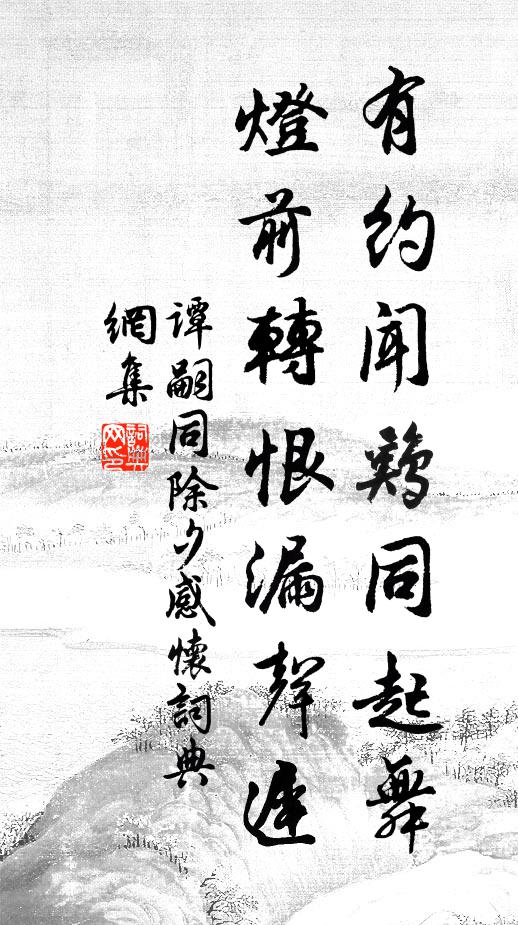 有約聞鷄同起舞
燈前轉恨漏聲遲
譚嗣同除夕感懷詞典
網集
詞典網印